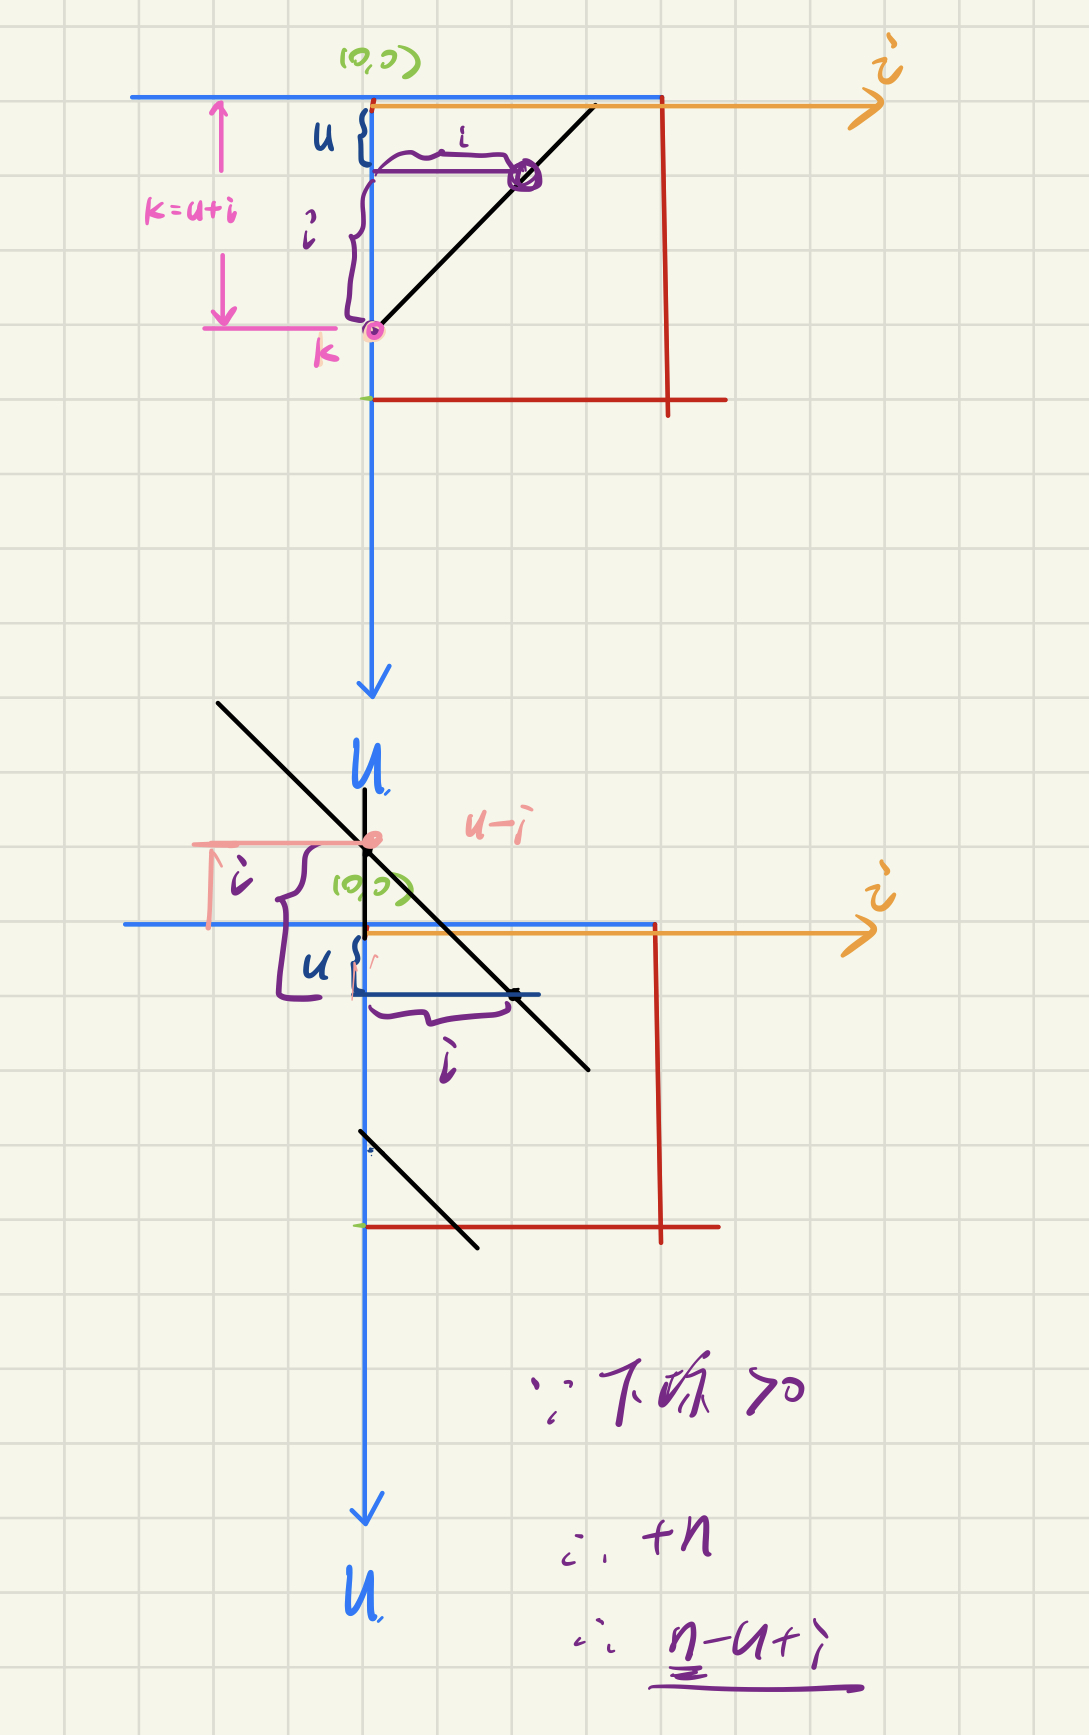 (0,0)
i
u
i
k=u+i
i
k
u
u-i
i
(0,0)
i
u
i
∵ 下标 >0
∴ +n
∴ n-u+i
u